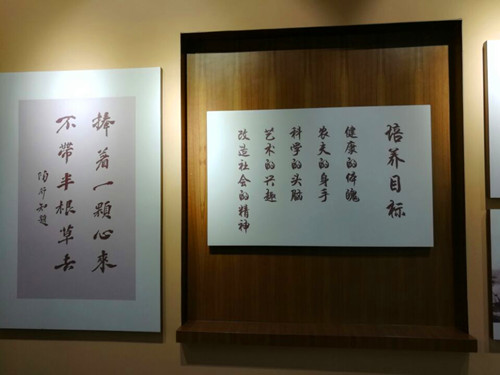 培养目标
健康的体魄
农夫的身手
科学的头脑
艺术的兴趣
改造社会的精神
捧着一顆心來
不帶半根草去
陶行知題